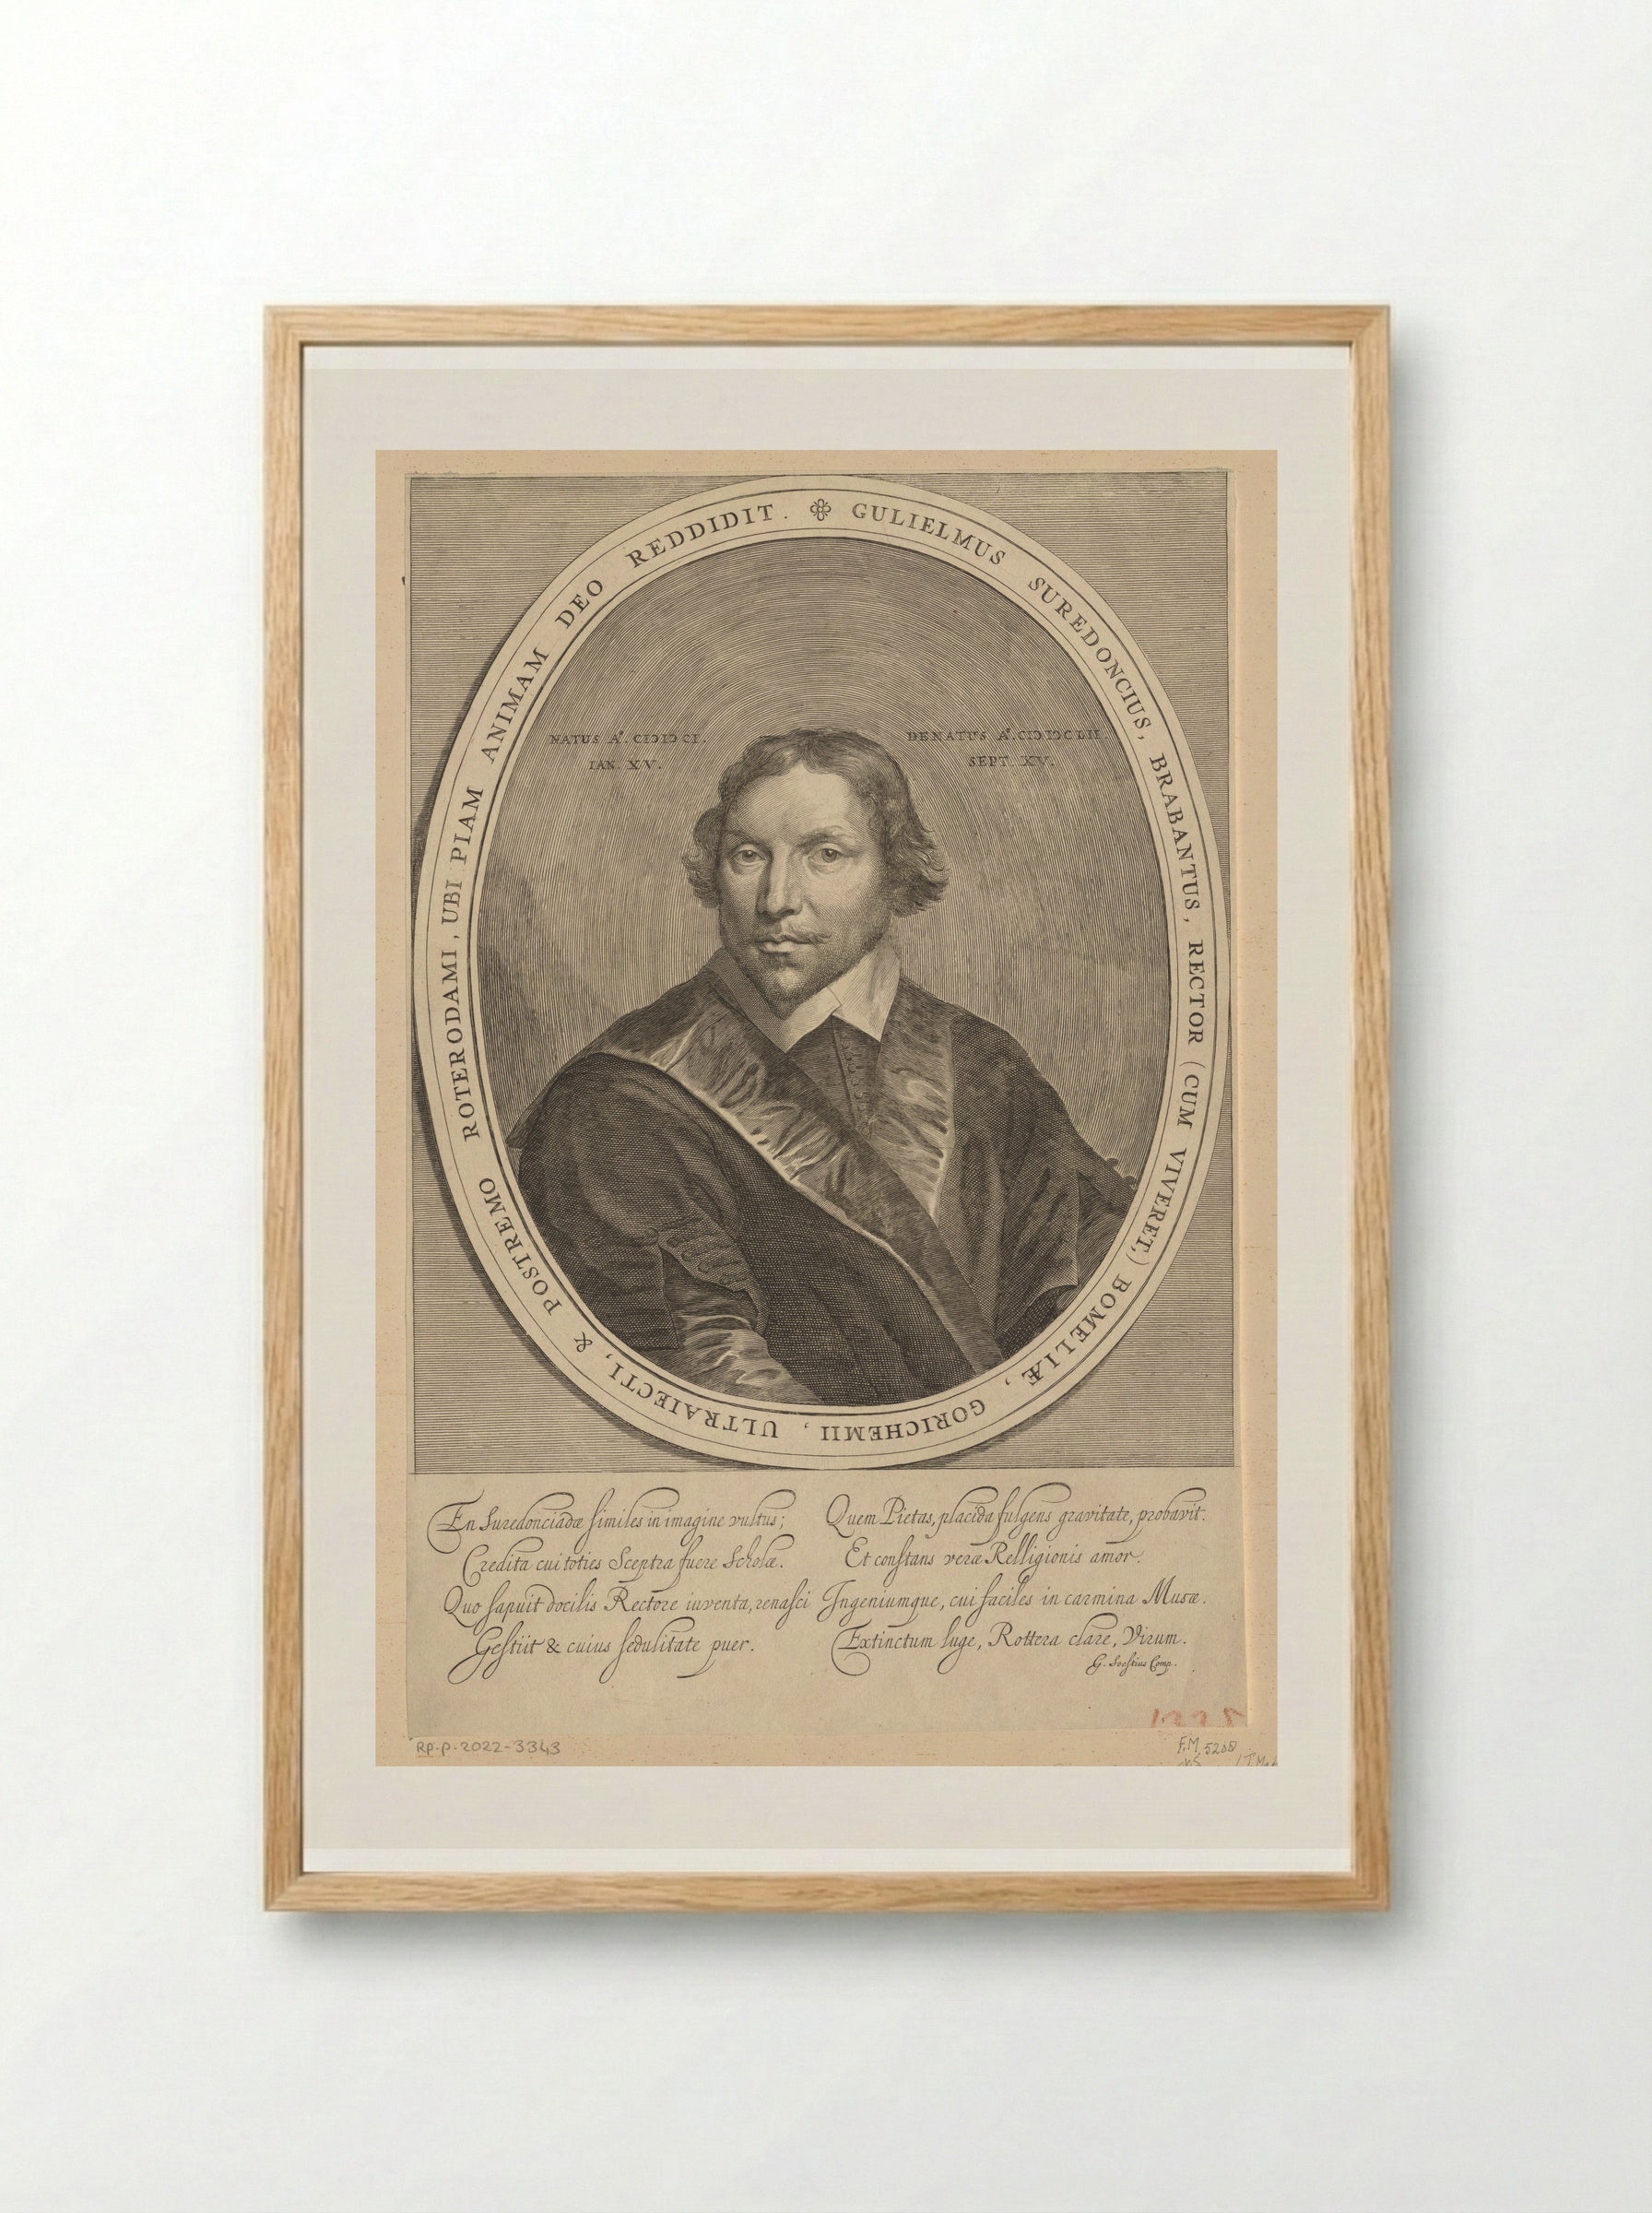 GULIELMUS SUREDONCIUS, BRABANTUS, RECTOR (CUM VIVERET,) BOMELIÆ, GORICHEMII, ULTRAIECTI, & POSTREMO ROTERODAMI, UBI PIAM ANIMAM DEO REDDIDIT.
NATUS Aº. CIↃIↃCI.
IAN. XV.
DENATUS Aº. CIↃIↃCLII
SEPT. XV.
En Suredonciadæ similes in imagine vultus;
Credita cui toties Sceptra fuere Scholæ.
Quo sapuit docilis Rectore iuventa, renasci
Gestiit & cuius sedulitate puer.
Quem Pietas, placida fulgens gravitate, probavit.
Et constans veræ Relligionis amor.
Ingeniumque, cui faciles in carmina Musæ.
Extinctum luge, Rottera clare, Virum.
RP-P-2022-3343
F.M. 5208